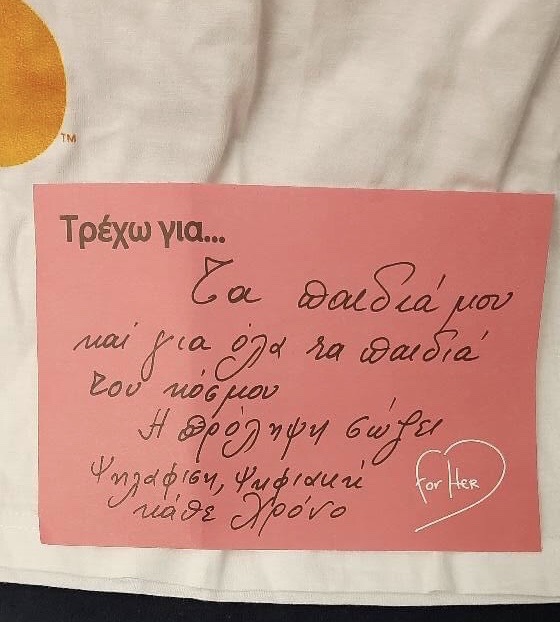 TM
Τρέχω για...
Τα παιδιά μου
και για όλα τα παιδιά
του κόσμου
Η πρόληψη σώζει
Ψηλάφιση, Ψηφιακή
κάθε χρόνο
for HER